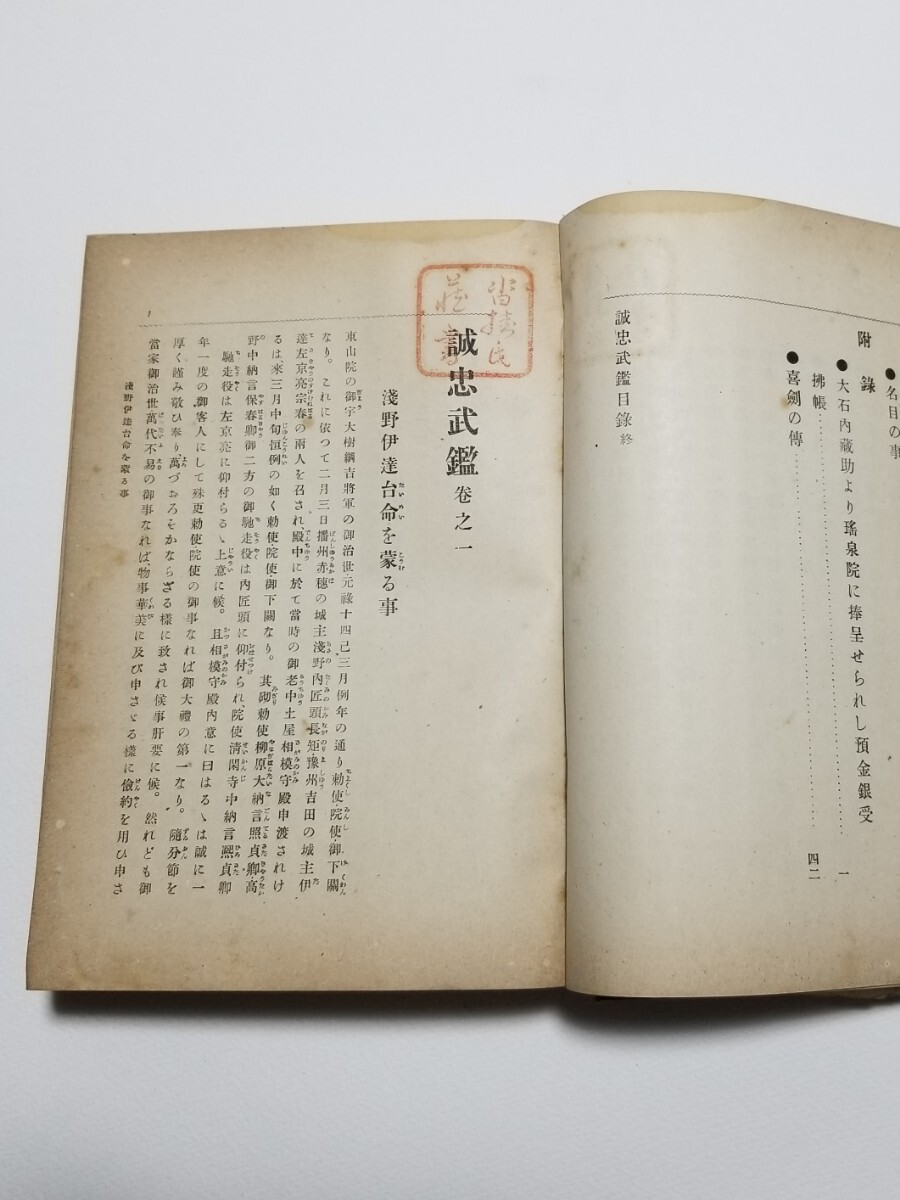 名目の事
附錄
●大石內藏助より瑤泉院に捧呈せられし預金銀受
拂帳……………………一
●喜劍の傳……………………四二
誠忠武鑑目錄 終
誠忠武鑑 卷之一
淺野伊達台命を蒙る事
東山院の御宇大樹綱吉將軍の御治世・元祿十四己三月例年の通り勅使院使御下關
なり。これに依つて二月三日播州赤穗の城主淺野內匠頭長矩・豫州吉田の城主伊
達左京亮宗春の兩人を召され、殿中に於て當時の御老中土屋相模守殿申渡されけ
るは、來三月中旬恒例の如く勅使・院使御下關なり。其砌勅使柳原大納言照貞卿・高
野中納言保春卿御二方の御馳走役は內匠頭に仰付られ、院使淸閑寺中納言熈貞卿
馳走役は左京亮に仰付らるゝ上意に候。且相模守殿內意に曰はるゝは誠に一
年一度の御客人にして殊更勅使院使の御事なれば御大禮の第一なり。隨分節を
厚く謹み敬ひ奉り萬づおろそかならざる樣に致され候事肝要に候。然れども御
當家御治世萬代不易の御事なれば、物事華美に及び申さゞる樣に儉約を用ひ申さ
淺野伊達台命を蒙る事
一